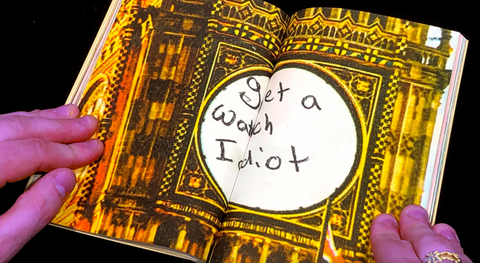 Get a
Watch
Idiot